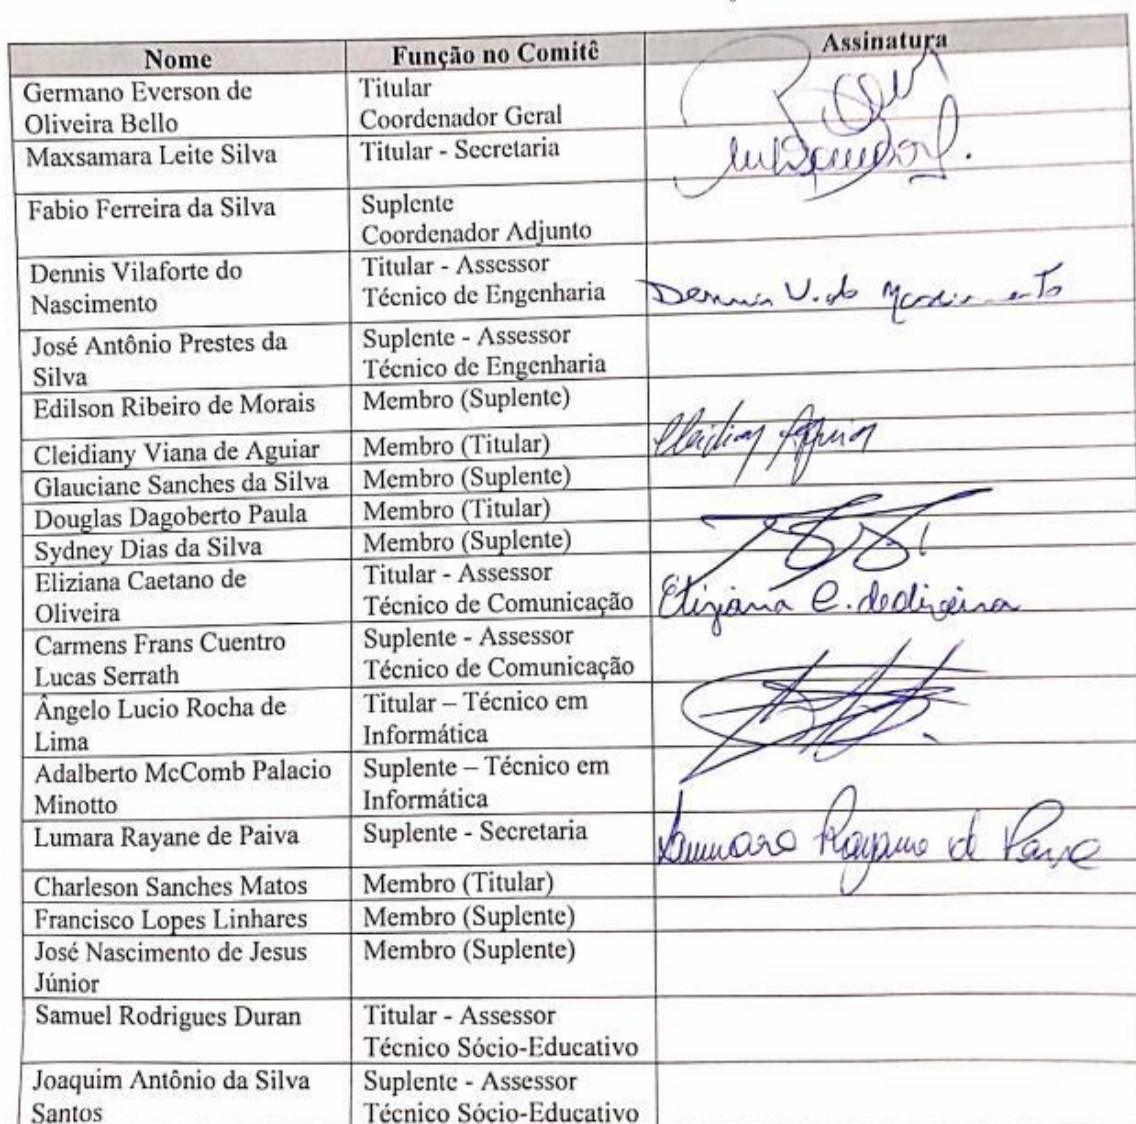 Nome Função no Comitê Assinatura
Germano Everson de Titular
Oliveira Bello Coordenador Geral
Maxsamara Leite Silva Titular - Secretaria
Fabio Ferreira da Silva Suplente
Coordenador Adjunto
Dennis Vilaforte do Titular - Assessor
Nascimento Técnico de Engenharia Dennis V. do Nascimento
José Antônio Prestes da Suplente - Assessor
Silva Técnico de Engenharia
Edilson Ribeiro de Morais Membro (Suplente)
Cleidiany Viana de Aguiar Membro (Titular) Cleidiany Aguiar
Glauciane Sanches da Silva Membro (Suplente)
Douglas Dagoberto Paula Membro (Titular)
Sydney Dias da Silva Membro (Suplente)
Eliziana Caetano de Titular - Assessor
Oliveira Técnico de Comunicação Eliziana C. de Oliveira
Carmens Frans Cuentro Suplente - Assessor
Lucas Serrath Técnico de Comunicação
Ângelo Lucio Rocha de Titular – Técnico em
Lima Informática
Adalberto McComb Palacio Suplente – Técnico em
Minotto Informática
Lumara Rayane de Paiva Suplente - Secretaria Lumara Rayane de Paiva
Charleson Sanches Matos Membro (Titular)
Francisco Lopes Linhares Membro (Suplente)
José Nascimento de Jesus Membro (Suplente)
Júnior
Samuel Rodrigues Duran Titular - Assessor
Técnico Sócio-Educativo
Joaquim Antônio da Silva Suplente - Assessor
Santos Técnico Sócio-Educativo